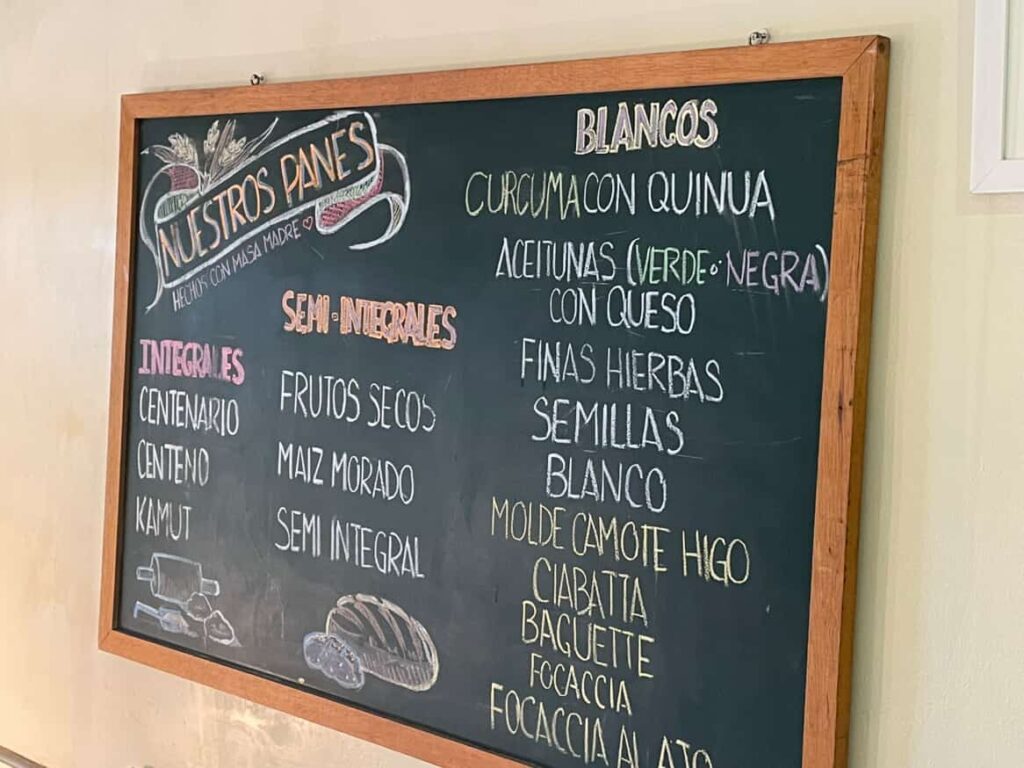 NUESTROS PANES
HECHOS CON MASA MADRE
INTEGRALES
CENTENARIO
CENTENO
KAMUT
SEMI-INTEGRALES
FRUTOS SECOS
MAIZ MORADO
SEMI INTEGRAL
BLANCOS
CURCUMA CON QUINUA
ACEITUNAS (VERDE o NEGRA)
CON QUESO
FINAS HIERBAS
SEMILLAS
BLANCO
MOLDE CAMOTE HIGO
CIABATTA
BAGUETTE
FOCACCIA
FOCACCIA AL AJO